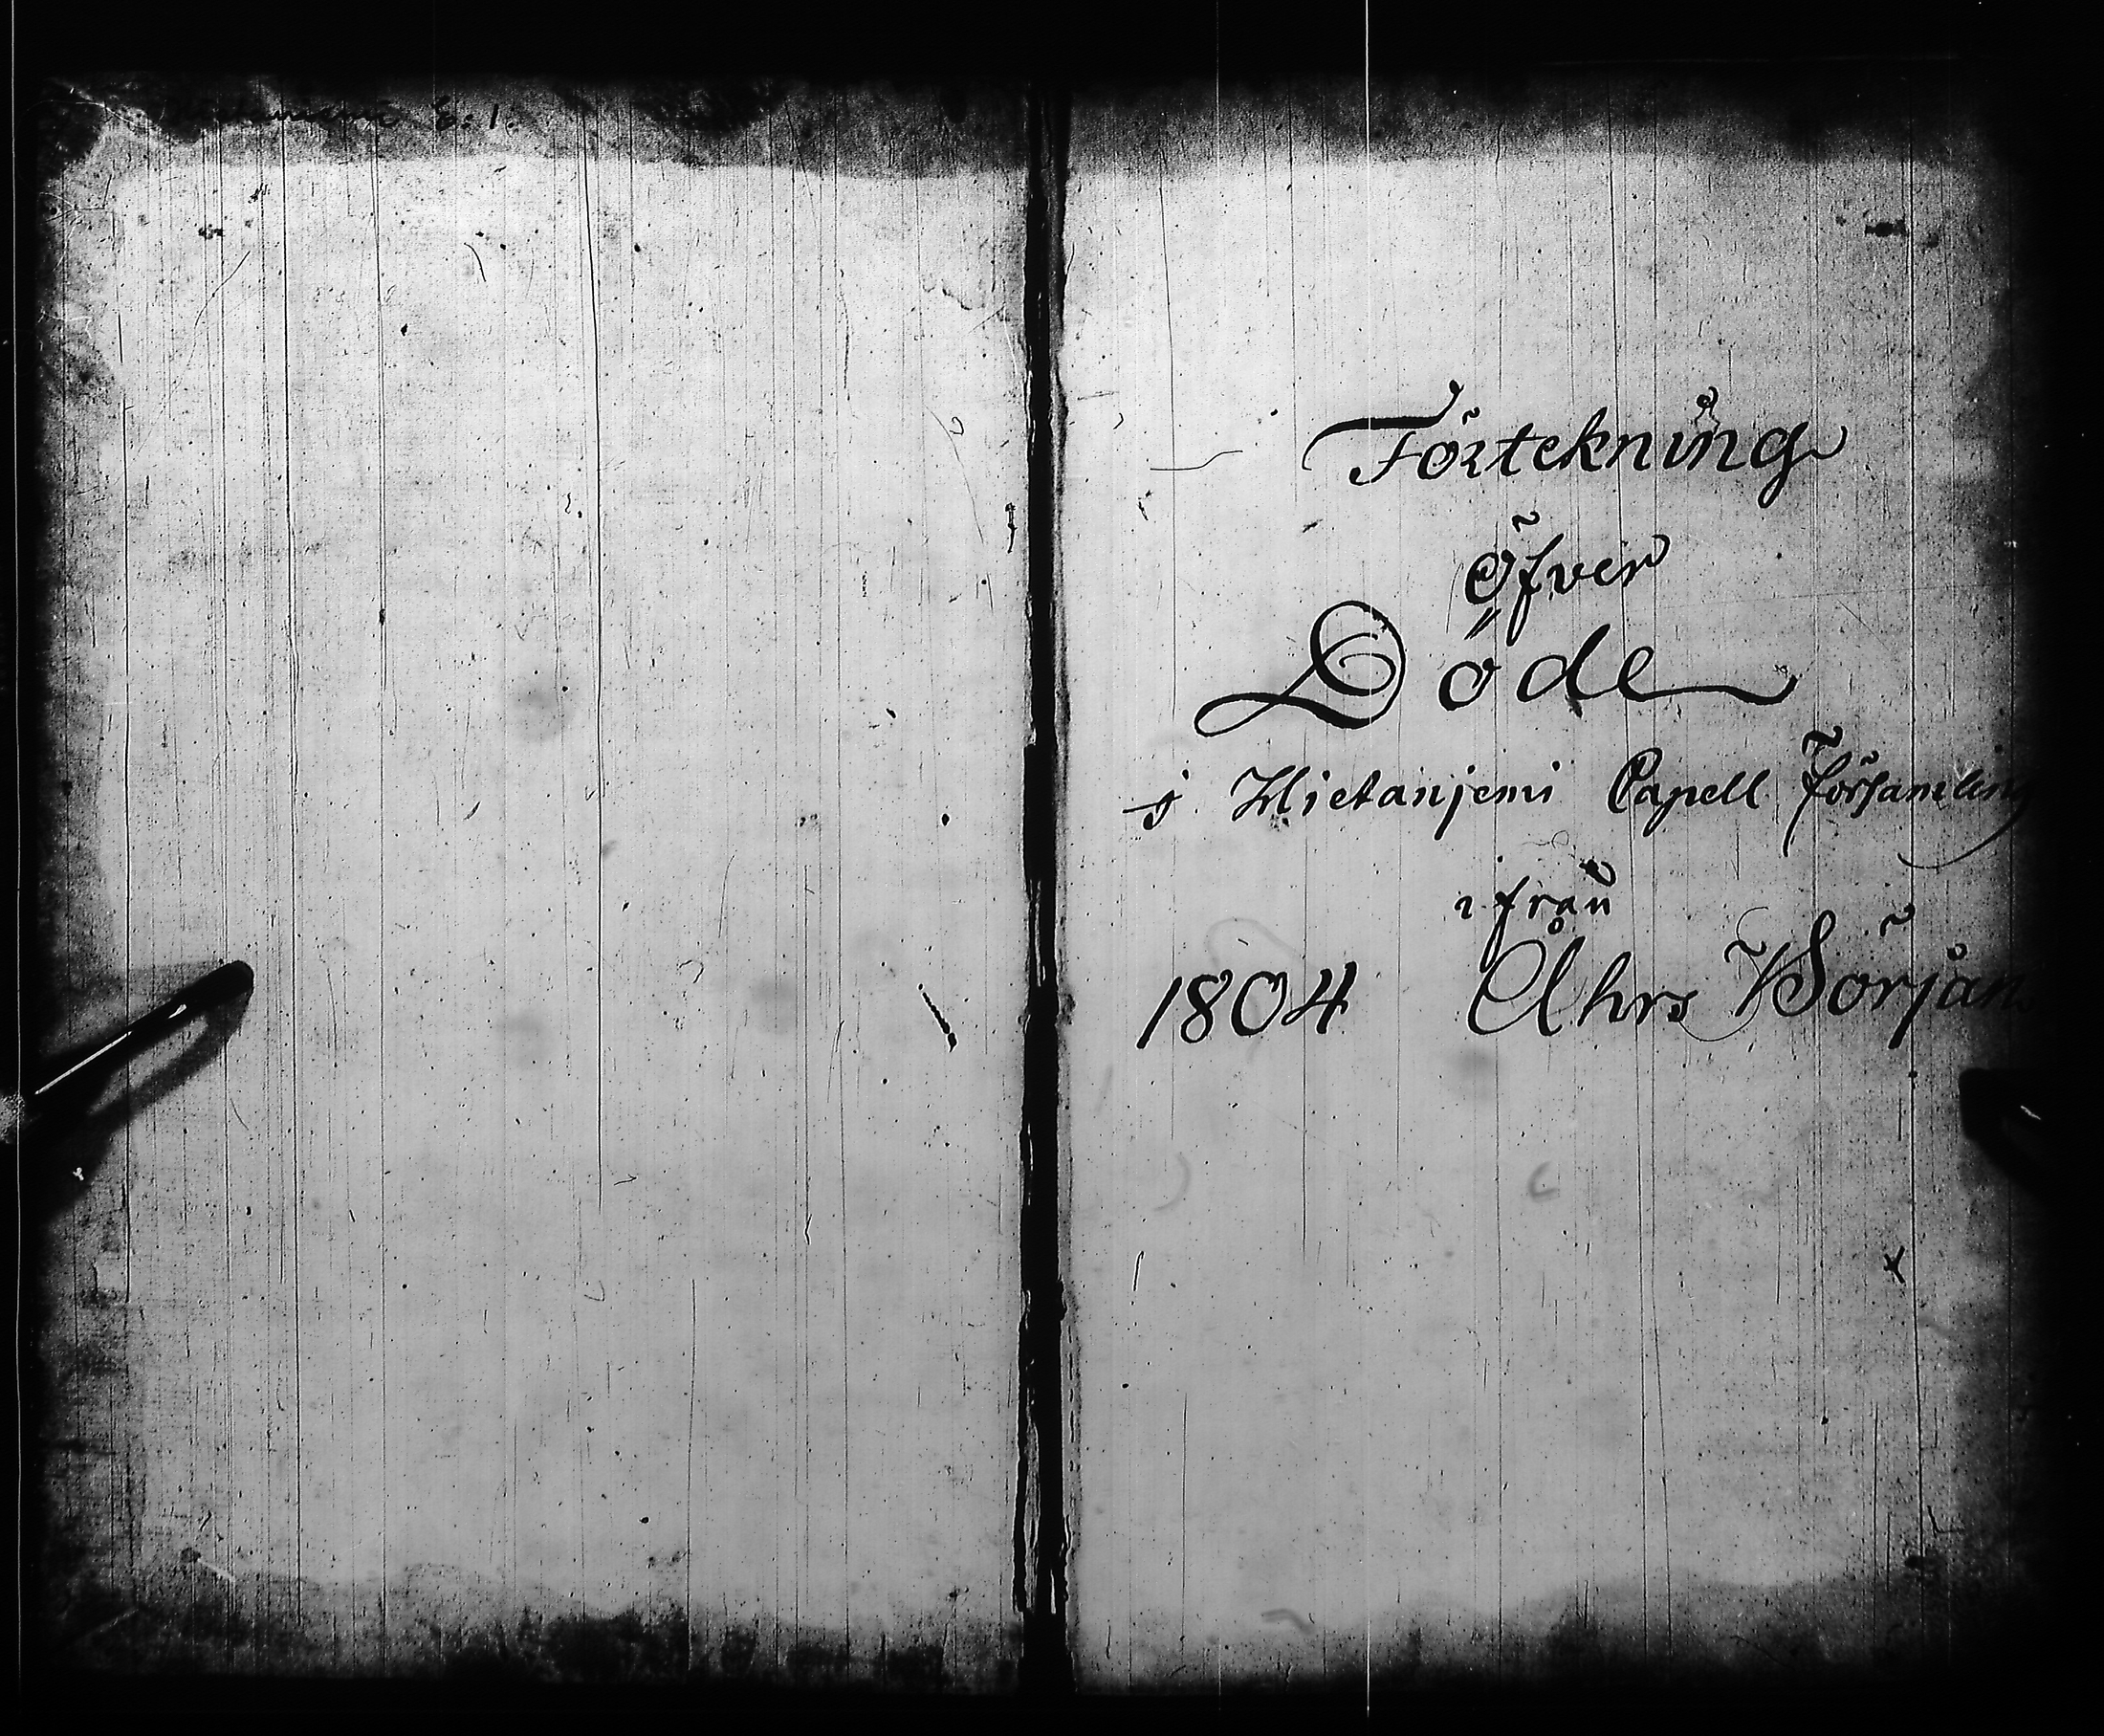 E: 1.
Förtekning
Öfver
Döde
i Hietaniemi Capell Församling
ifrån
1804 Åhrs Början